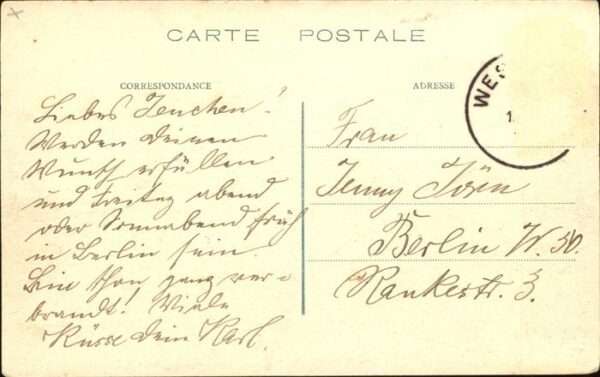 CARTE POSTALE
CORRESPONDANCE
ADRESSE
WES
1.
Liebes Jenchen!
Werden deinen
Wunsch erfüllen
und Freitag abend
oder Sonnabend früh
in Berlin sein.
Bin schon ganz ver-
brandt! Viele
Küsse dein Karl.
Frau
Jenny Jörn
Berlin W. 50.
Rankestr. 3.